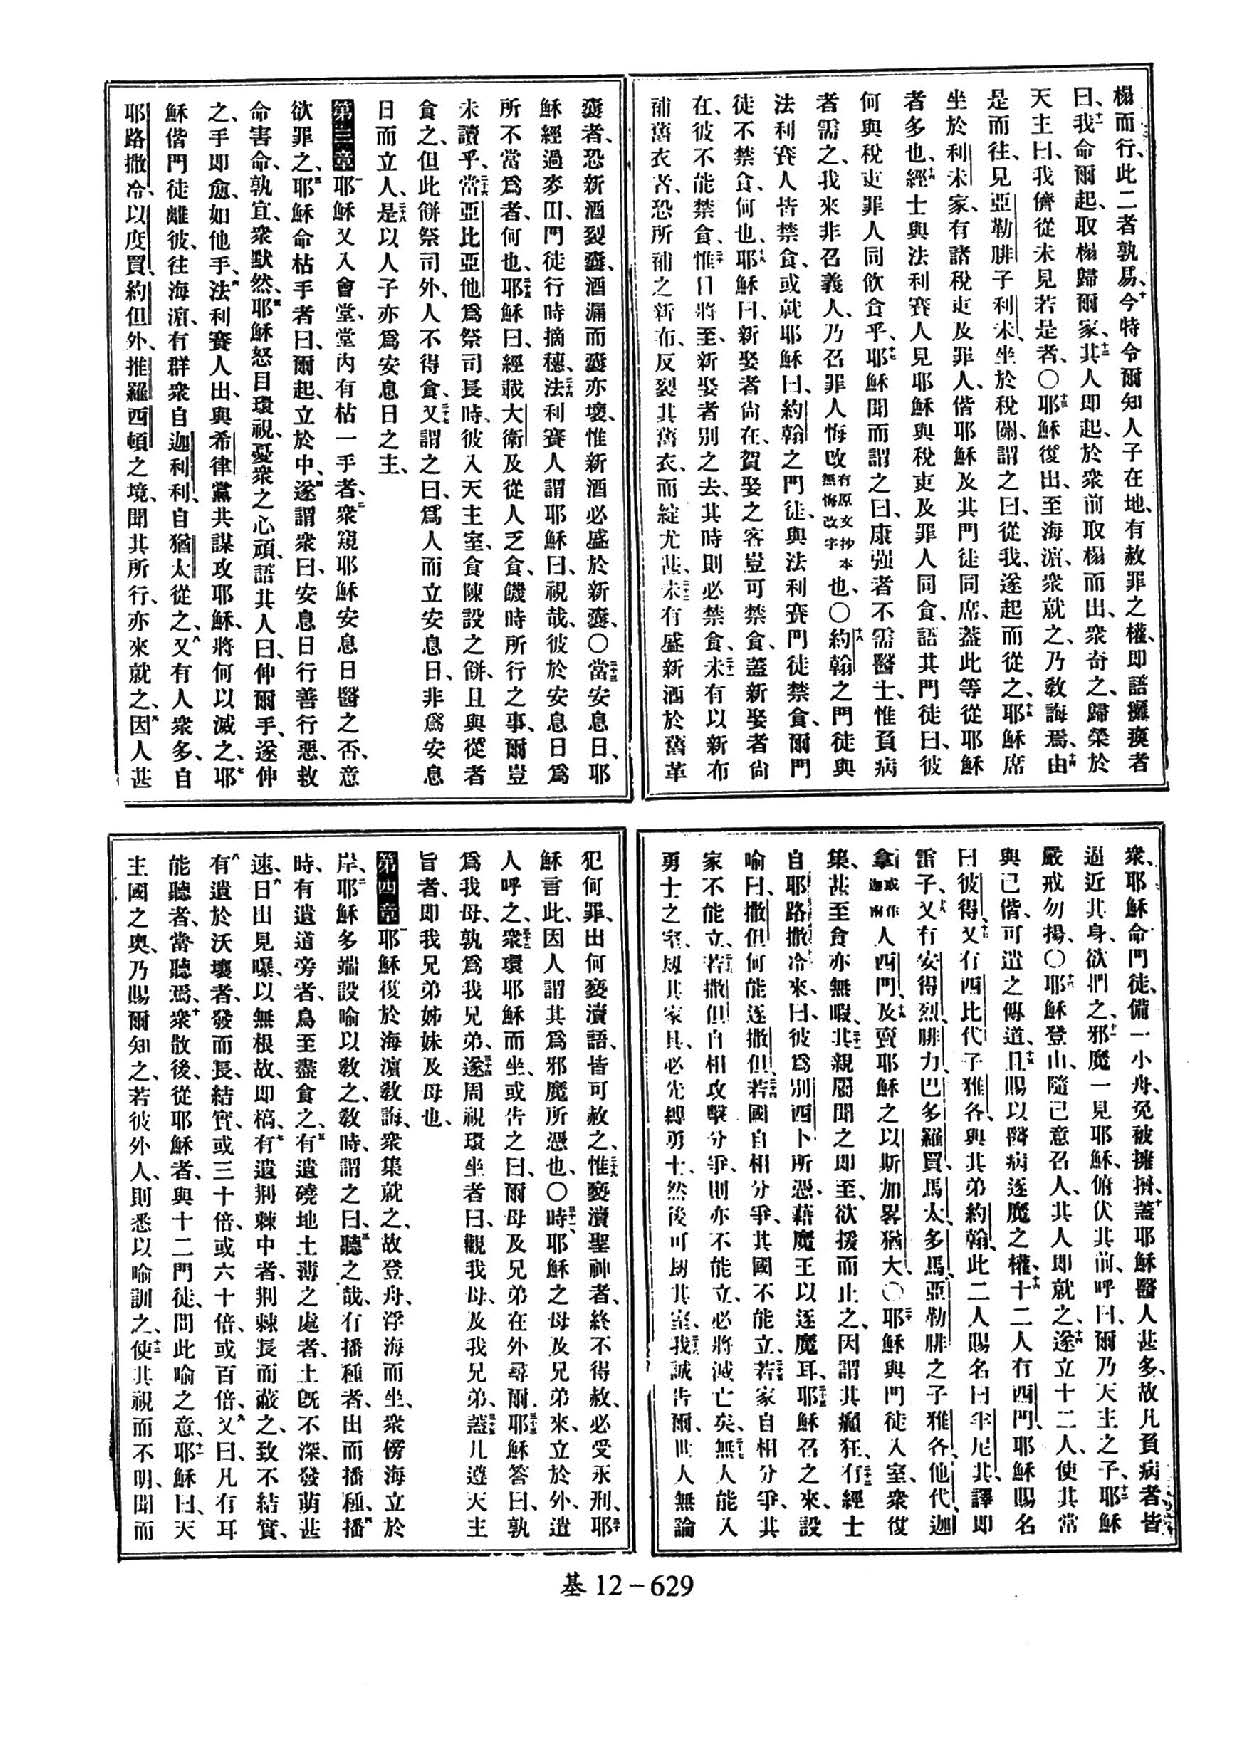 榻而行、此二者孰易、今特令爾知人子在地、有赦罪之權、即語攤瘓者
曰、我命爾起、取榻歸爾家、其人即起、於衆前取榻而出、衆奇之、歸榮於
天主曰、我儕從未見若是者、〇耶穌復出至海濱、衆就之、乃教誨焉、由
是而往、見亞勒腓子利未、坐於稅關、謂之曰、從我、遂起而從之、耶穌席
坐於利未家、有諸稅吏及罪人、偕耶穌及其門徒同席、蓋此等從耶穌
者多也、經士與法利賽人見耶穌與稅吏及罪人同食、語其門徒曰、彼
何與稅吏罪人同飲食乎、耶穌聞而謂之曰、康强者不需醫士、惟負病
者需之、我來非召義人、乃召罪人悔改有原文抄本無悔改字也、〇約翰之門徒與
法利賽人皆禁食、或就耶穌曰、約翰之門徒、與法利賽門徒禁食、爾門
徒不禁食、何也、耶穌曰、新娶者尙在、賀娶之客豈可禁食、蓋新娶者尙
在、彼不能禁食、惟日將至、新娶者別之去、其時則必禁食、未有以新布
補舊衣者、恐所補之新布、反裂其舊衣、而綻尤甚、未有盛新酒於舊革
囊者、恐新酒裂囊、酒漏而囊亦壞、惟新酒必盛於新囊、〇當安息日、耶
穌經過麥田、門徒行時摘穗、法利賽人謂耶穌曰、視哉、彼於安息日爲
所不當爲者、何也、耶穌曰、經載大衛及從人乏食、饑時所行之事、爾豈
未讀乎、當亞比亞他爲祭司長時、彼入天主室、食陳設之餅、且與從者
食之、但此餅祭司外、人不得食、又謂之曰、爲人而立安息日、非爲安息
日而立人、是以人子亦爲安息日之主、
第三章耶穌又入會堂、堂內有枯一手者、衆窺耶穌安息日醫之否、意
欲罪之、耶穌命枯手者曰、爾起、立於中、遂謂衆曰、安息日行善行惡、救
命害命、孰宜、衆默然、耶穌怒目環視、憂衆之心頑、語其人曰、伸爾手、遂伸
之、手即愈、如他手、法利賽人出、與希律黨共謀攻耶穌、將何以滅之、耶
穌偕門徒離彼、往海濱、有群衆自迦利利、自猶太從之、又有人衆多、自
耶路撒冷、以度買、約但外、推羅西頓之境、聞其所行、亦來就之、因人甚
衆、耶穌命門徒、備一小舟、免被擁擠、蓋耶穌醫人甚多、故凡負病者皆
逼近其身、欲捫之、邪魔一見耶穌、俯伏其前、呼曰、爾乃天主之子、耶穌
嚴戒勿揚、〇耶穌登山、隨己意召人、其人即就之、遂立十二人、使其常
與己偕、可遣之傳道、且賜以醫病逐魔之權、十二人有西門、耶穌賜名
曰彼得、又有西比代子雅各、與其弟約翰、此二人賜名曰半尼其、譯即
雷子、又有安得烈、腓力、巴多羅買、馬太、多馬、亞勒腓之子雅各、他代、迦
拿或作迦南人西門、及賣耶穌之以斯加畧猶大、〇耶穌與門徒入室、衆復
集、甚至食亦無暇、其親屬聞之即至、欲援而止之、因謂其癲狂、有經士
自耶路撒冷來、曰、彼爲別西卜所憑、藉魔王以逐魔耳、耶穌召之來、設
喻曰、撒但何能逐撒但、若國自相分爭、其國不能立、若家自相分爭、其
家不能立、若撒但自相攻擊分爭、則亦不能立、必將滅亡矣、無人能入
勇士之室、刼其家具、必先縛勇士、然後可刼其室、我誠告爾、世人無論
犯何罪、出何褻瀆語、皆可赦之、惟褻瀆聖神者、終不得赦、必受永刑、耶
穌言此、因人謂其爲邪魔所憑也、〇時、耶穌之母及兄弟來、立於外、遣
人呼之、衆環耶穌而坐、或告之曰、爾母及兄弟在外尋爾、耶穌答曰、孰
爲我母、孰爲我兄弟、遂周視環坐者曰、觀我母、及我兄弟、蓋凡遵天主
旨者、即我兄弟姊妹及母也、
第四章耶穌復於海濱教誨、衆集就之、故登舟、浮海而坐、衆傍海立於
岸、耶穌多端設喻以敎之、敎時、謂之曰、聽之哉、有播種者、出而播種、播
時、有遺道旁者、鳥至盡食之、有遺磽地土薄之處者、土旣不深、發萌甚
速、日出見曝、以無根故、即槁、有遺荆棘中者、荆棘長而蔽之、致不結實、
有遺於沃壤者、發而長、結實、或三十倍、或六十倍、或百倍、又曰、凡有耳
能聽者、當聽焉、衆散後、從耶穌者、與十二門徒、問此喻之意、耶穌曰、天
主國之奧、乃賜爾知之、若彼外人、則悉以喻訓之、使其視而不明、聞而
基 12 – 629